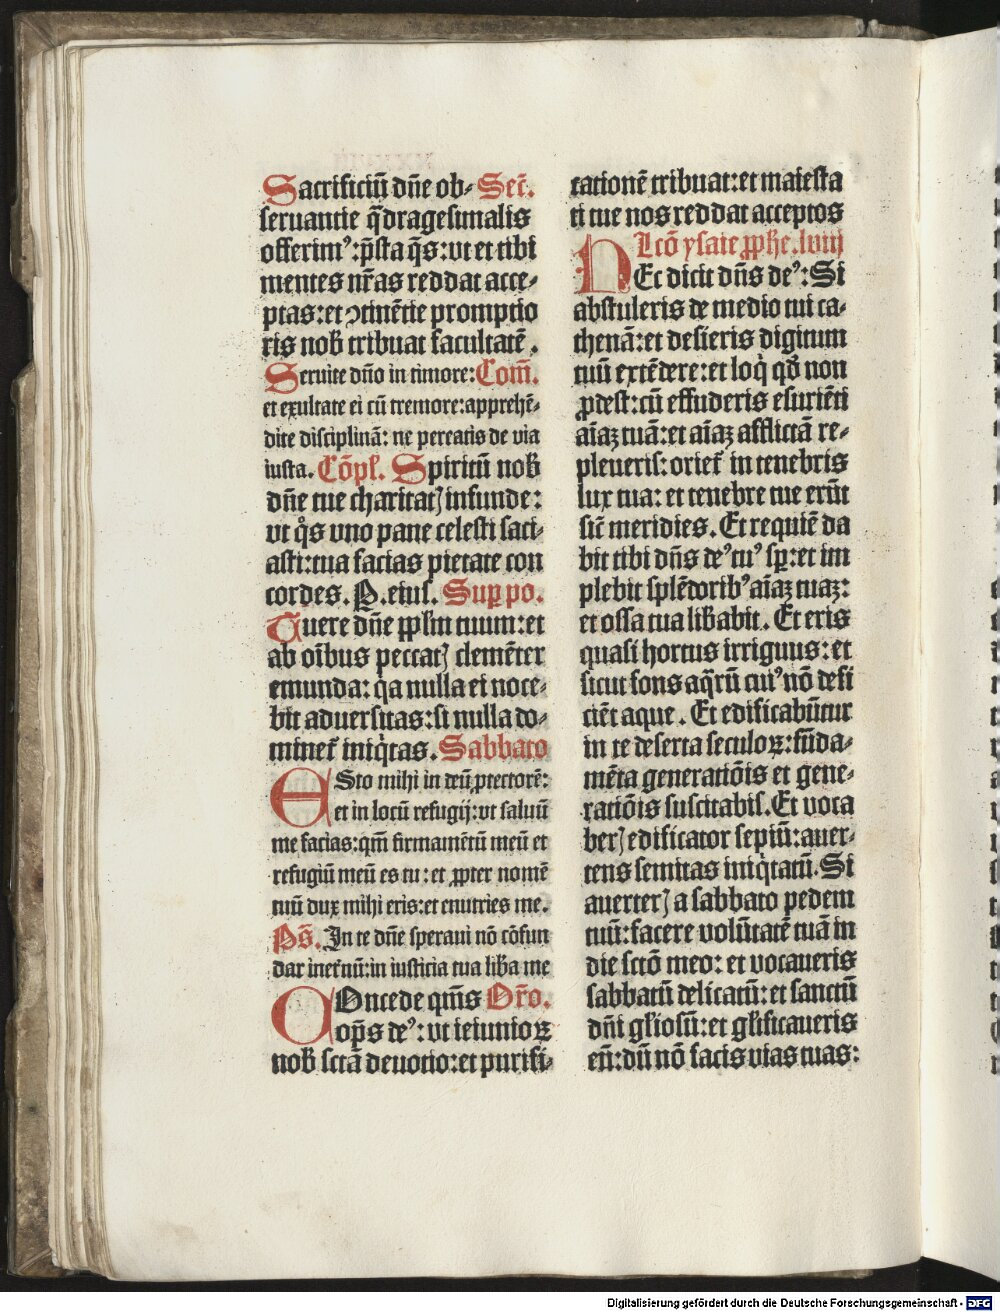 Sacrificiū dñe ob- Secͫ.
seruantie q̄dragesimalis
offerimꝰ: p̄sta q̄s: vt et tibi
mentes nr̄as reddat acce-
ptas: et ꝯtinētie promptio
ris nob̄ tribuat facultatē.
Seruite dño in timore: Com̄.
et exultate ei cū tremore: apprehē-
dite disciplinā: ne pereatis de via
iusta. Cōpl. Spiritū nob̄
dñe tue charitatꝭ infunde:
vt qͦs vno pane celesti saci-
asti: tua facias pietate con
cordes. P. eiuſ. Supꝑ po.
Tuere dñe ppl̄m tuum: et
ab oībus peccatꝭ clemēter
emunda: qa nulla ei noce-
bit aduersitas: si nulla do-
minet᷑ iniqͥtas. Sabbato
ESto mihi in deū ꝓtectorē:
et in locū refugij: vt saluū
me facias: qm̄ firmamētū meū et
refugiū meū es tu: et ꝓpter nomē
tuū dux mihi eris: et enutries me.
Ps̄. In te dñe speraui nō cōfun
dar inet᷑nū: in iusticia tua lib̄a me
COncede qm̄s Or̄o.
op̄s deꝰ: vt ieiunioꝝ
nob̄ sctā deuotio: et purifi-
cationē tribuat: et maiesta
ti tue nos reddat acceptos
Lcō ysaie ꝓphe. lviij
HEc dicit dn̄s deꝰ: Si
abstuleris de medio tui ca-
thenā: et desieris digitum
tuū extēdere: et loqͥ qd̄ non
ꝓdest: cū effuderis esuriēti
aīaꝫ tuā: et aīaꝫ afflictā re-
pleueris: oriet᷑ in tenebris
lux tua: et tenebre tue erūt
sic̄ meridies. Et requiē da
bit tibi dn̄s deꝰ tuꝰ sp̄: et im
plebit splēdoribꝰ aīaꝫ tuaꝫ:
et ossa tua lib̄abit. Et eris
quasi hortus irriguus: et
sicut fons aq̄rū cuiꝰ nō defi
ciēt aque. Et edificabūtur
in te deserta seculoꝝ: fūda-
mēta generatiōis et gene-
ratiōis suscitabis. Et voca
berꝭ edificator sepiū: auer-
tens semitas iniqͥtatū. Si
auerterꝭ a sabbato pedem
tuū: facere volūtatē tuā in
die sctō meo: et vocaueris
sabbatū delicatū: et sanctū
dn̄i gl̄iosū: et gl̄ificaueris
eū: dū nō facis vias tuas:
Digitalisierung gefördert durch die Deutsche Forschungsgemeinschaft - DFG